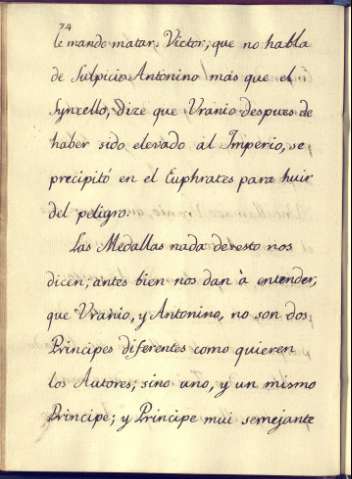 74
le mando matar. Victor, que no habla
de Sulpicio Antonino más que el
Syncello, dize que Uranio despues de
haber sido elevado al Imperio, se
precipitó en el Euphrates para huir
del peligro.
Las Medallas nada de esto nos
dicen, antes bien nos dan à entender,
que Uranio, y Antonino, no son dos
Principes diferentes como quieren
los Autores; sino uno, y un mismo
Principe; y Principe mui semejante